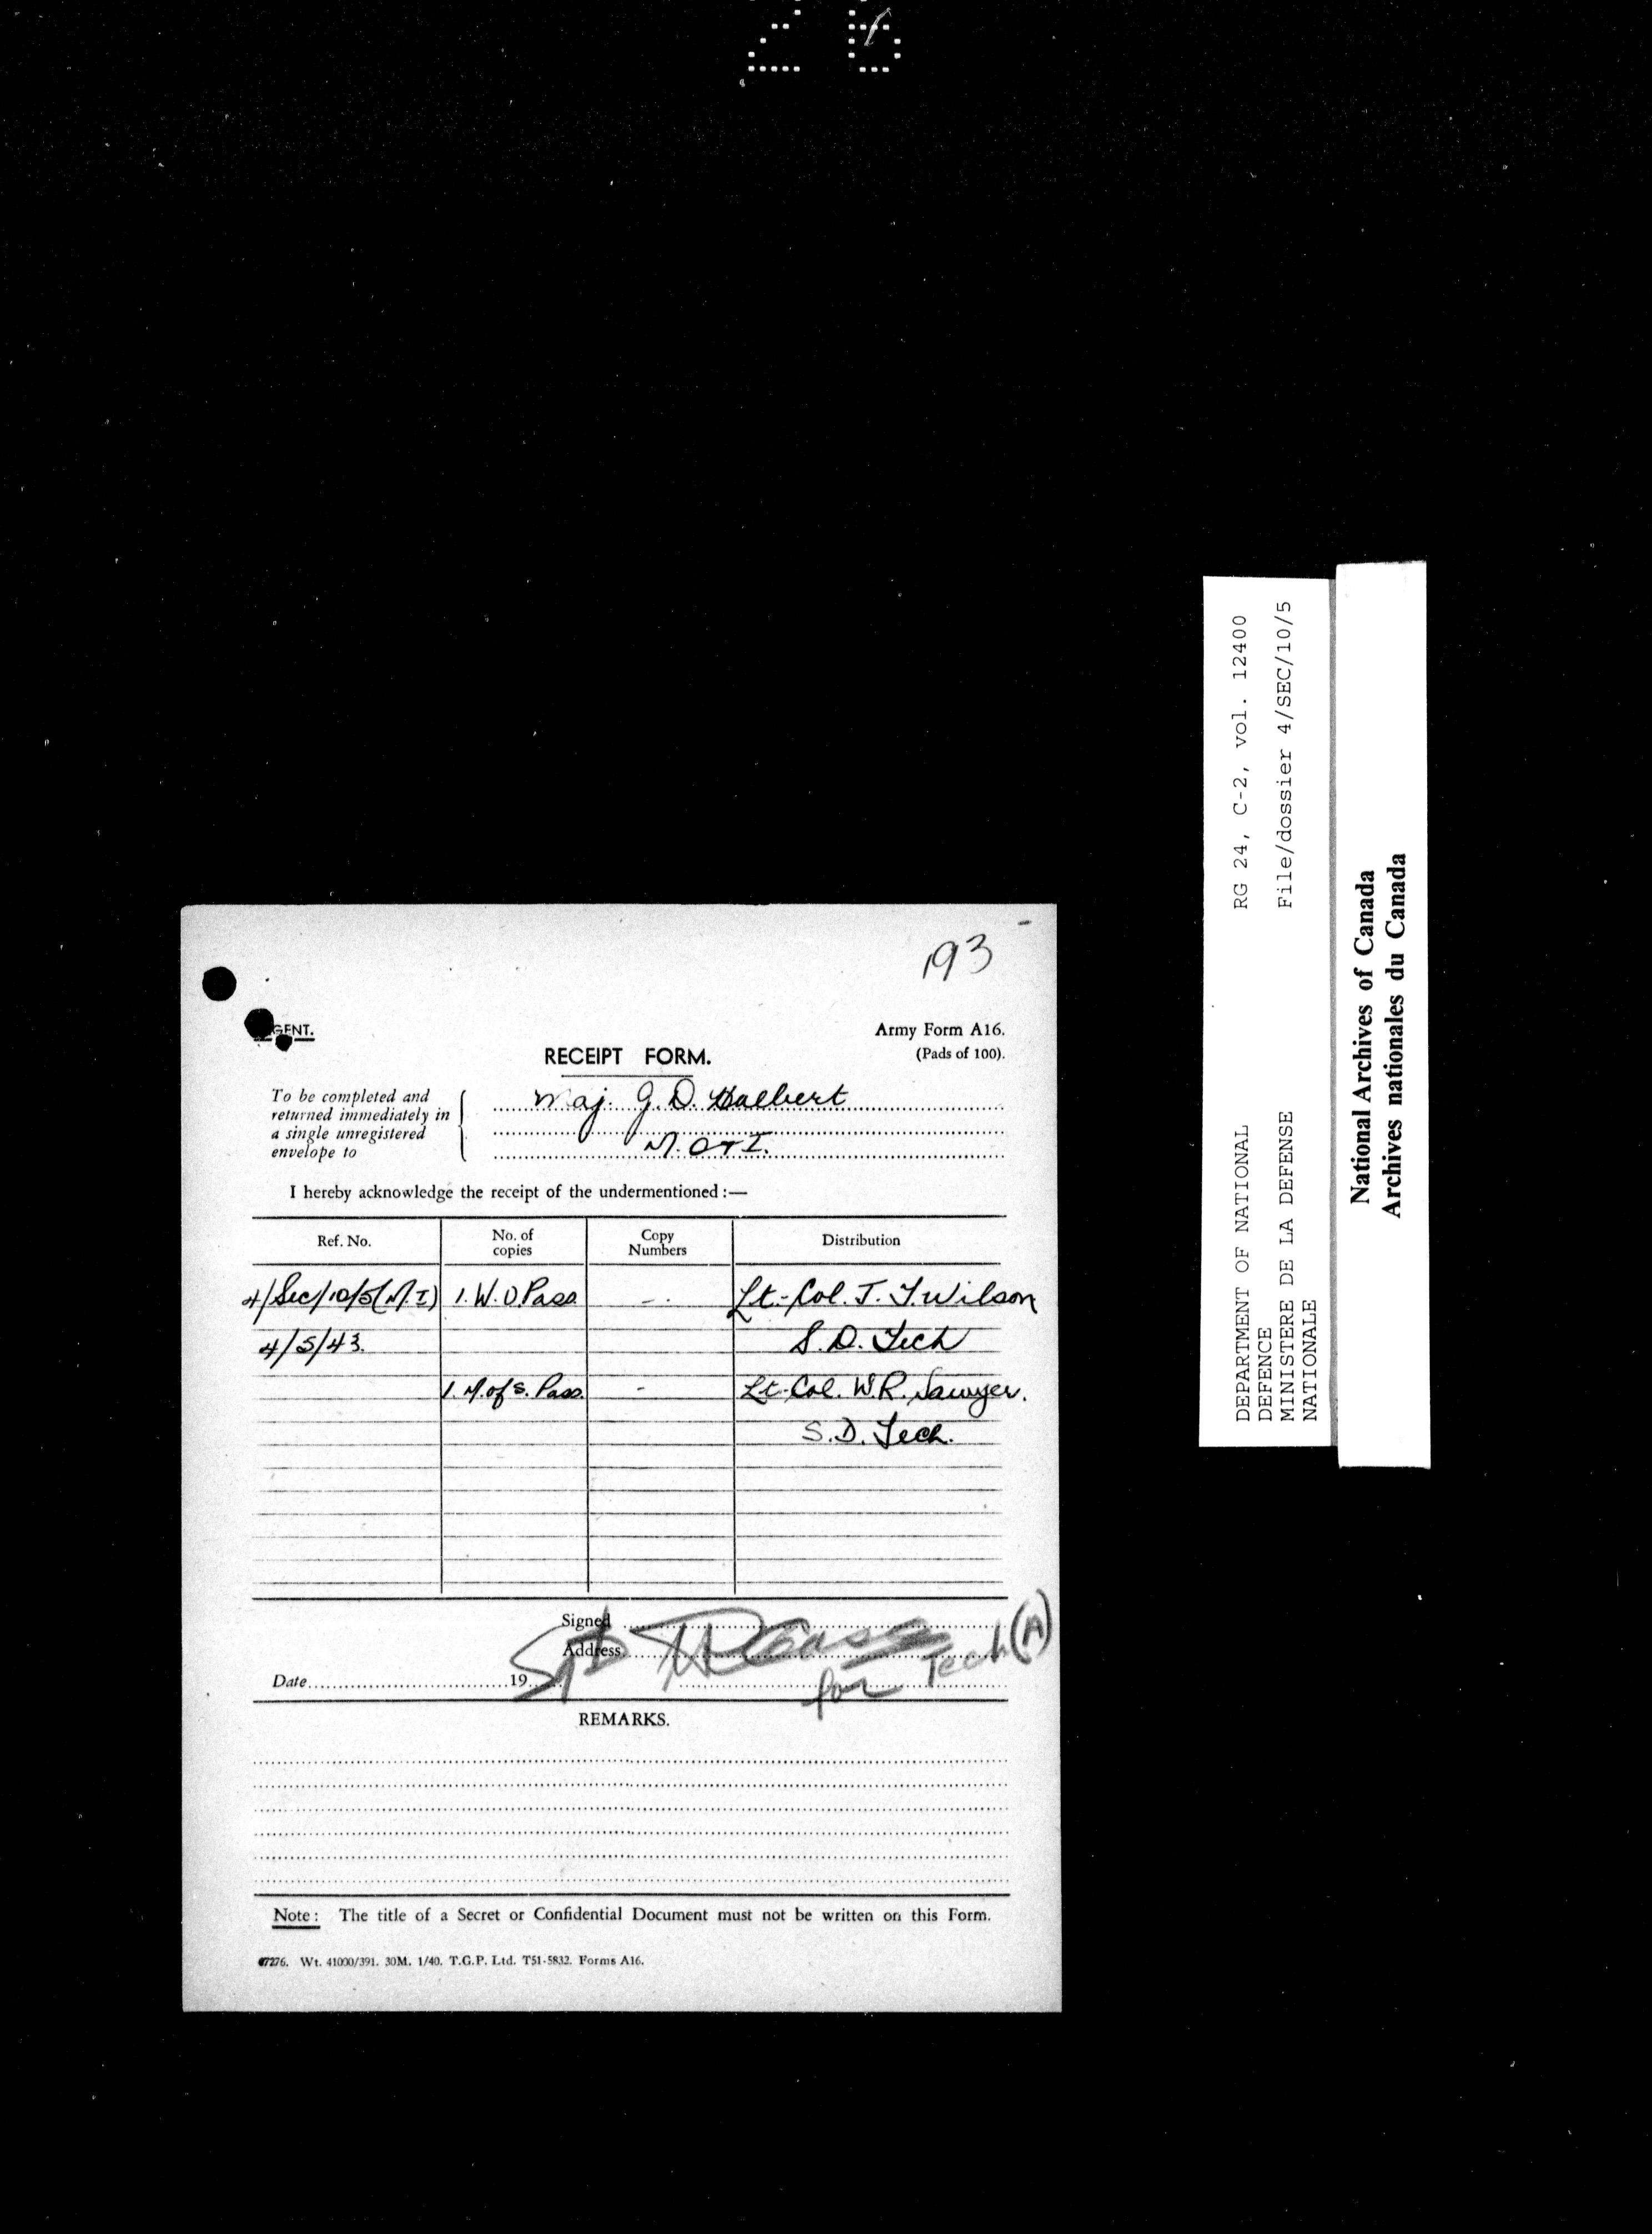 26
193
GENT.
Army Form A16.
RECEIPT FORM.
(Pads of 100).
To be completed and
returned immediately in
a single unregistered
envelope to
Maj. G. D. Halbert
M.O & I.
I hereby acknowledge the receipt of the undermentioned :—
Ref. No. No. of copies Copy Numbers Distribution
4/Sec/10/5(M.I) 1. W.O. Pass. -. Lt.-Col. J. T. Wilson
4/5/43. S.D. Tech
1. M. of S. Pass. - Lt-Col. W.R. Sawyer.
S.D. Tech.
Signed
Address
for Tech (A)
Date 19
REMARKS.
Note : The title of a Secret or Confidential Document must not be written on this Form.
07276. Wt. 41000/391. 30M. 1/40. T.G.P. Ltd. T51-5832. Forms A16.
DEPARTMENT OF NATIONAL RG 24, C-2, vol. 12400
DEFENCE
MINISTERE DE LA DEFENSE File/dossier 4/SEC/10/5
NATIONALE
National Archives of Canada
Archives nationales du Canada